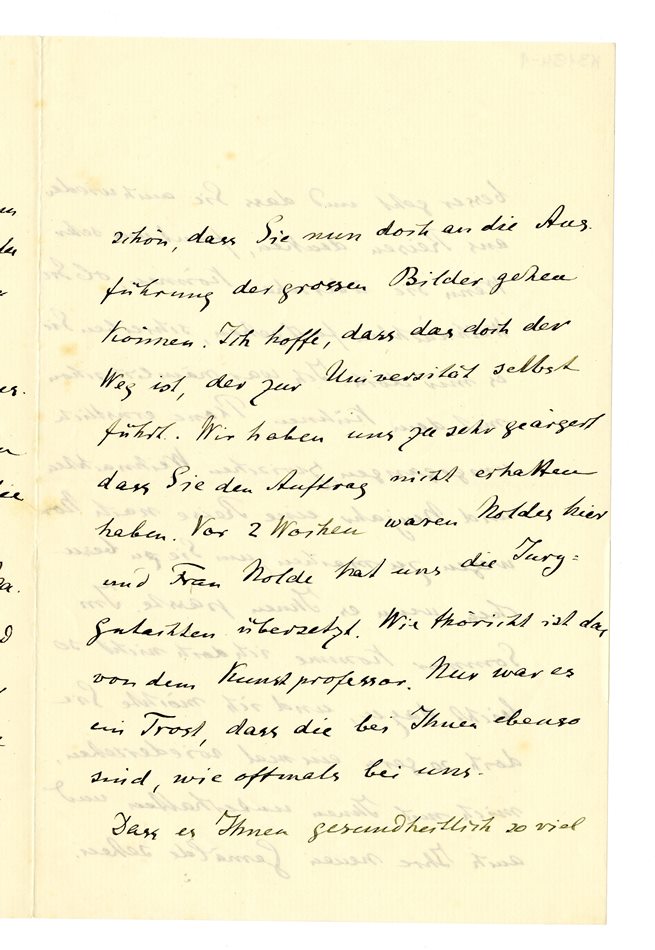 schön, dass Sie nun doch an die Aus-
führung der grossen Bilder gehen
können. Ich hoffe, dass das doch der
Weg ist, der zur Universität selbst
führt. Wir haben uns zu sehr geärgert
dass Sie den Auftrag nicht erhalten
haben. Vor 2 Wochen waren Noldes hier
und Frau Nolde hat uns die Jury=
gutachten übersetzt. Wie thöricht ist das
von dem Kunstprofessor. Nur war es
ein Trost, dass die bei Ihnen ebenso
sind, wie oftmals bei uns.
Dass es Ihnen gesundheitlich so viel